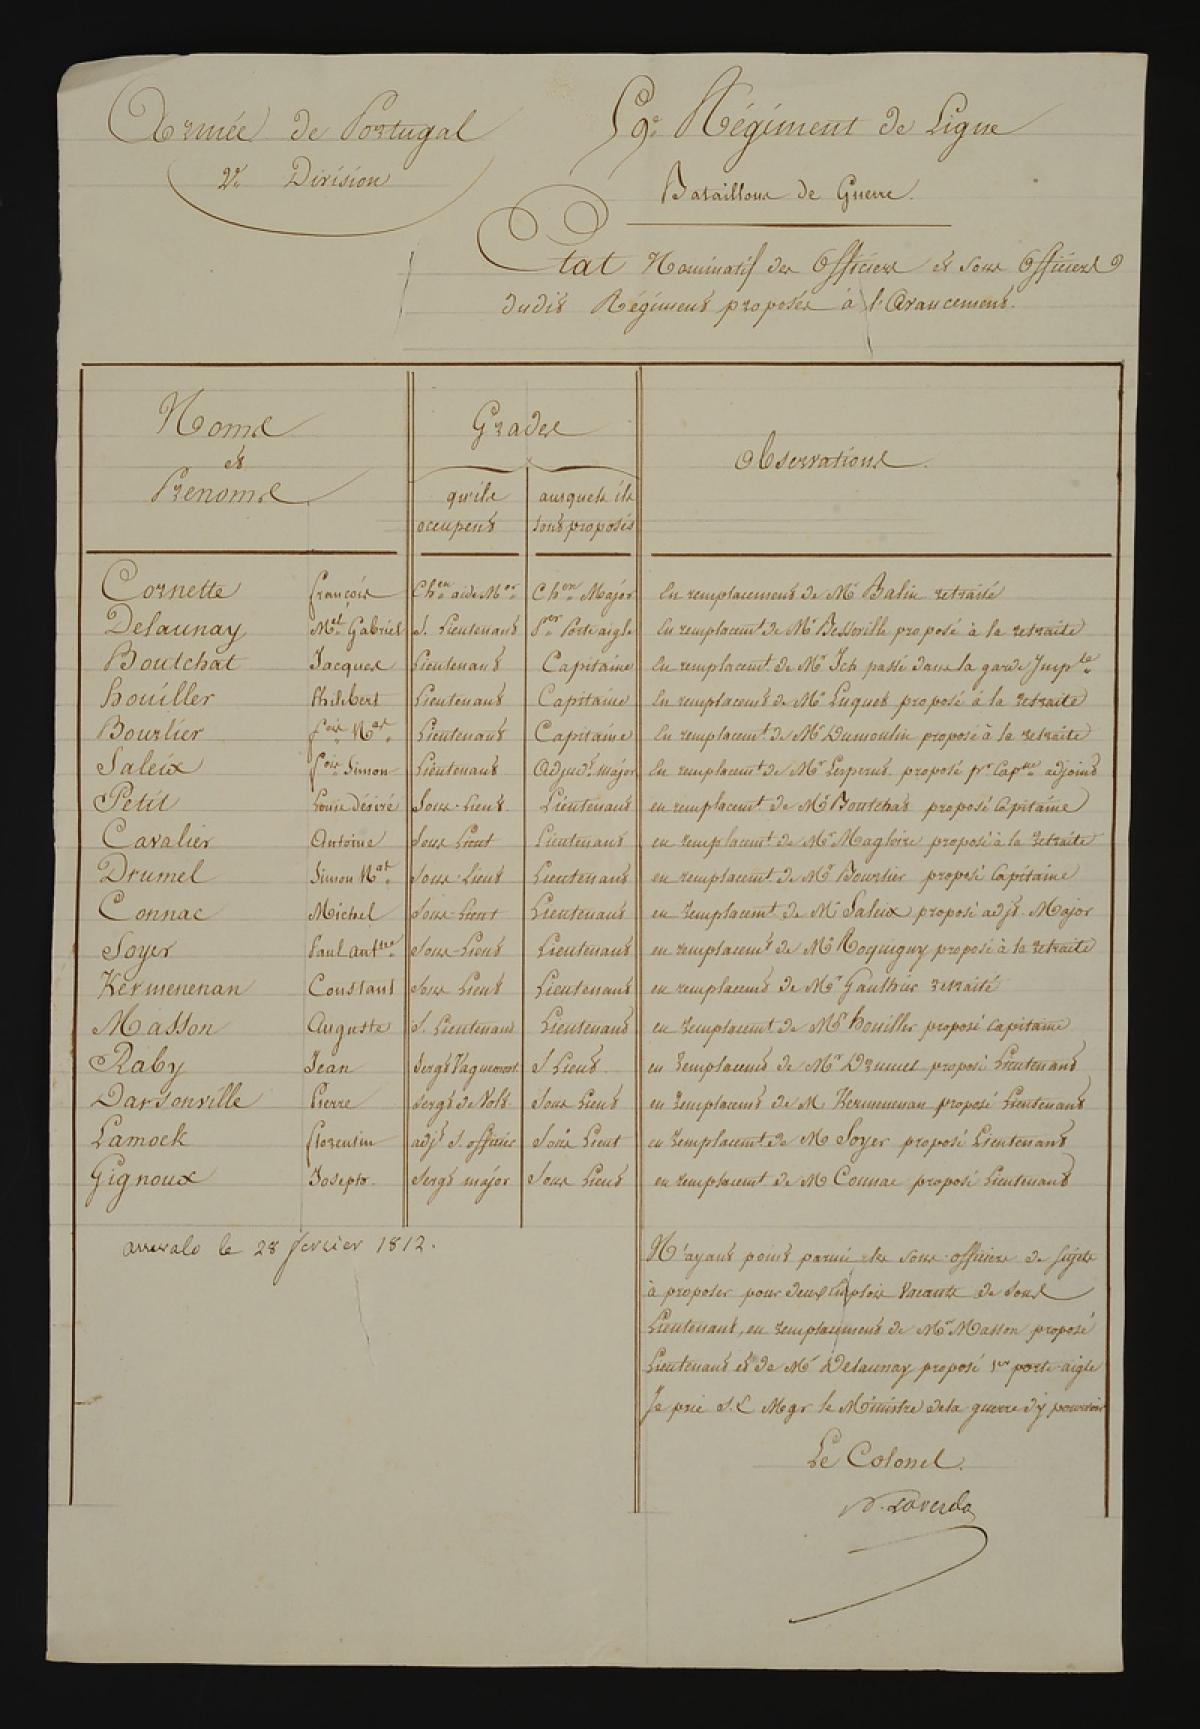 Armée de Portugal
2e Division
59e Régiment de Ligne
Bataillons de Guerre.
Etat Nominatif des Officiers et sous Officiers
dudit Régiment proposés à l'Avancement.
Noms
et
Prenoms
Grades
qu'ils
occupent
auxquels ils
sont proposés
Observations.
Cornette François Chen aide Mor Chen Major En remplacement de Mr Balin retraité
Delaunay Mel Gabriel S. Lieutenant Per Porte aigle En remplacent de Mr Besseville proposé à la retraite
Boutchat Jacques Lieutenant Capitaine En remplacemt de Mr Ich passé dans la garde Imple
houiller Philibert Lieutenant Capitaine En remplacement de Mr Luquet proposé à la retraite
Bourlier fois Mat Lieutenant Capitaine En remplacemt de Mr Dumoulin proposé à la retraite
Saleix fois Simon Lieutenant Adjudt major En remplacemt de Mr Lespert proposé pr Capne adjoint
Petit Louis désiré Sous-Lieut. Lieutenant en remplacemt de Mr Boutchat proposé Capitaine
Cavalier Antoine Sous Lieut Lieutenant en remplacemt de Mr Magloire proposé à la retraite
Drumel Simon Mat Sous-Lieut Lieutenant en remplacemt de Mr Bourlier proposé Capitaine
Connac Michel Sous-Lieut Lieutenant en remplacemt de Mr Saleix proposé adjt Major
Soyer Paul antne Sous-Lieut Lieutenant en remplacemt de Mr Roquigny proposé à la retraite
Kermenenan Constant Sous Lieut Lieutenant en remplacemt de Mr Gaulthier retraité
Masson Auguste S. Lieutenant Lieutenant en remplacemt de Mr houiller proposé capitaine
Raby Jean Sergt Vaguemest S Lieut. en remplacemt de Mr Drumel proposé Lieutenant
Darsonville Pierre Sergt de Volt. Sous Lieut en remplacemt de M Kermenenan proposé Lieutenant
Lamock florentin adjt S. officier Sous Lieut en remplacemt de M Soyer proposé Lieutenant
Gignoux Joseph. Sergt major Sous Lieut en remplacemt de M Connac proposé Lieutenant
arevalo le 28 fevrier 1812.
N'ayant point parmi les sous-officiers de sujets
à proposer pour deux emplois vacants de sous
Lieutenant, en remplacement de Mr Masson proposé
Lieutenant et de Mr Delaunay proposé 1er porte-aigle
Je prie S.E Mgr le Ministre de la guerre d'y pourvoir
Le Colonel.
Loverdo